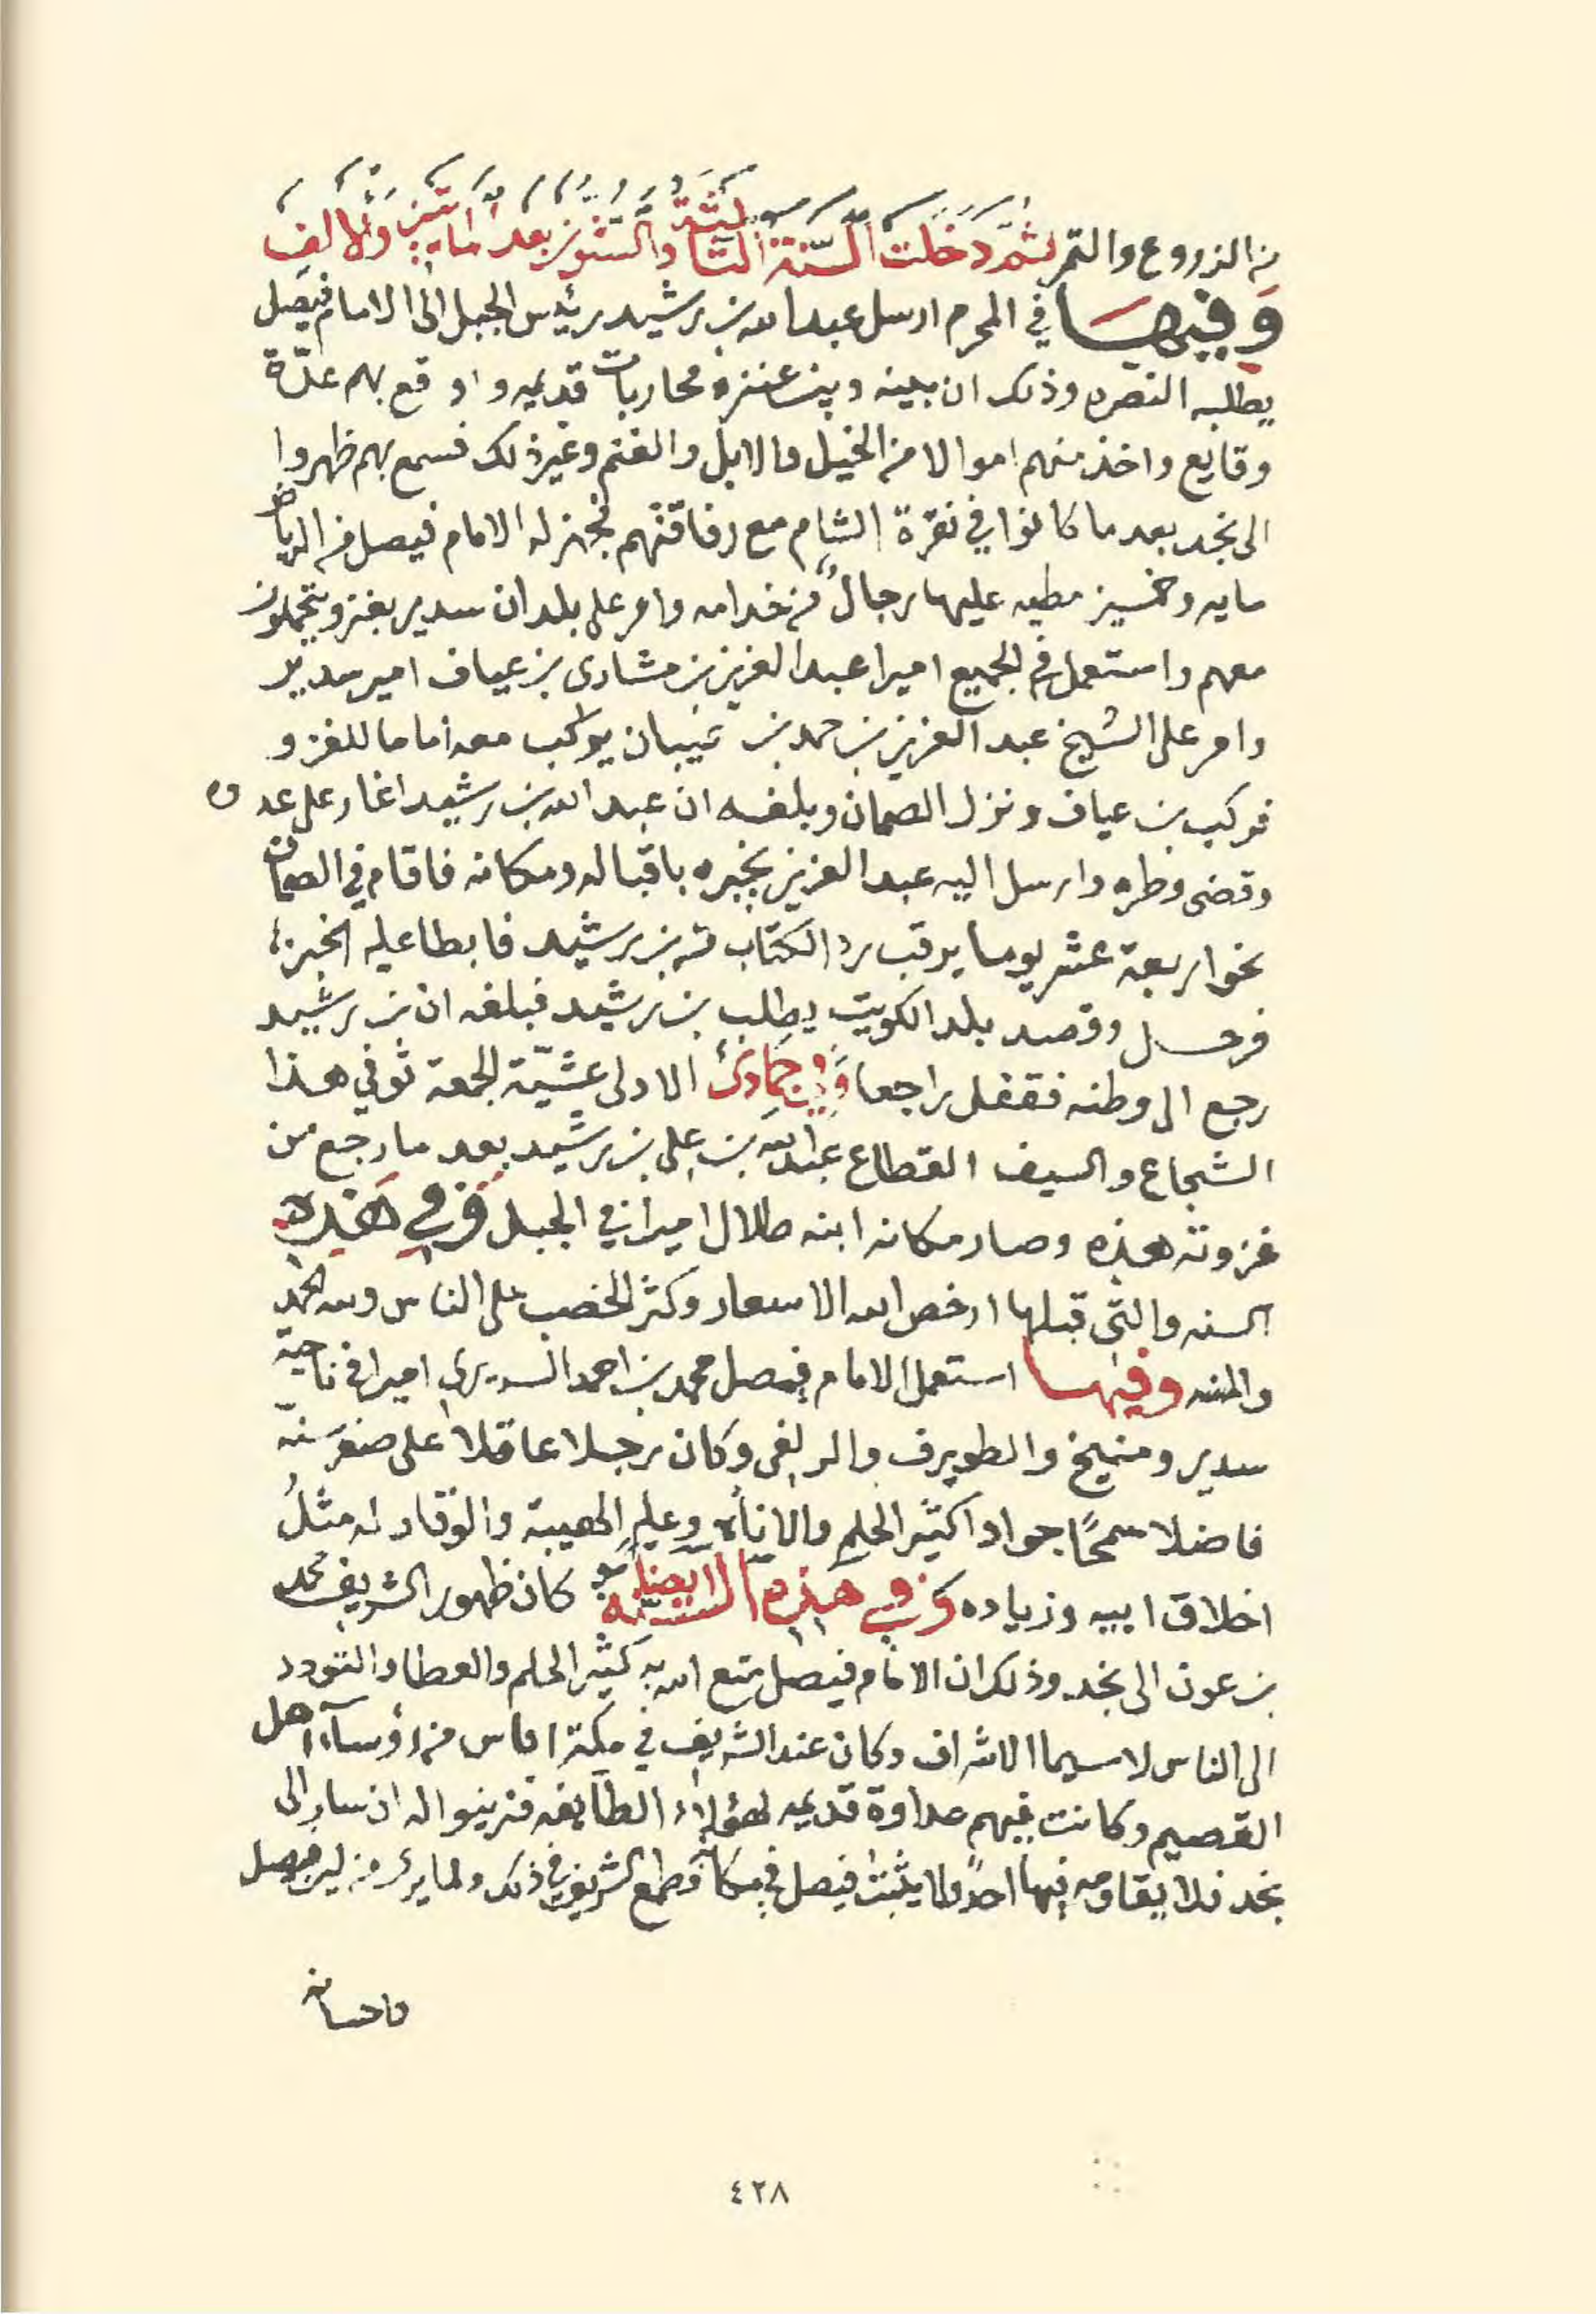 من الزروع والتمر ثُمَّ دَخَلَت السَّنَةُ الثَّالِثَةُ والسِّتُّون بعد المايتين والالف
وَفِيهَا في المحرم ارسل عبدالله بن رشيد رئيس الجبل الى الامام فيصل
يطلبه النصره وذلك ان بينه وبين عنزه محاربات قديمه واوقع بهم عدّة
وقايع واخذ منهم اموالا من الخيل والابل والغنم وغير ذلك فسمع بهم ظهروا
الى نجد بعد ما كانوا في نقرة الشام مع رفاقتهم فجهز له الامام فيصل من الرياض
مايه وخمسين مطيه عليها رجالٌ من خدامه وامر على بلدان سدير بغزو يتجملون
معهم واستعمل في الجميع اميرا عبدالعزيز بن مشارى بن عياف امير سدير
وامر على الشيخ عبد العزيز بن حمد بن عيبان يركب معه اماما للغزو
فركب بن عياف ونزل الصمان وبلغه ان عبد الله بن رشيد اغار على عدوه
وقضى وطره وارسل اليه عبد العزيز يخبره باقباله ومكانه فاقام في الصمان
نحو اربعة عشر يوما يرقب رد الكتاب من بن رشيد فابطا عليه الخبر
فرحل وقصد بلد الكويت يطلب بن رشيد فبلغه ان بن رشيد
رجع الى وطنه فقفل راجعا وَفِي جمَادى الاولى عشيّة الجمعة توفي هذا
الشجاع والسيف القطاع عبدالله بن علي بن رشيد بعد ما رجع من
غزوته هذه وصار مكانه ابنه طلال اميرا في الجبل وَفي هَذِه
السنه والتي قبلها ارخص الله الاسعار وكثر الخصب على الناس ولله الحمد
والمنه وفيها استعمل الامام فيصل محمد بن احمد السديري اميرا في ناحية
سدير ومنيخ والطويرف والزلفى وكان رجلا عاقلا على صغر سنّه
فاضلا سمحًا جوادا كثير الحلم والاناه وعليه الهيبة والوقار له مثلُ
اخلاق ابيه وزياده وَفي هذه السنَة ايضاً كان ظهور الشريف محمد
بن عون الى نجد وذلك ان الامام فيصل متع الله به كثير الحلم والعطا والتودد
الى الناس لا سيما الاشراف وكان عند الشريف في مكة اناس من رؤسآء اهل
القصيم وكانت فيهم عداوة قديمه لهؤلاء الطايفه فزينوا له ان سار الى
نجد فلا يقاومه فيها احدٌ ولا يثبت فيصل في مكانه فطمع الشريف في ذلك ولما يرى من لين فيصل
واحسانه
٤٢٨